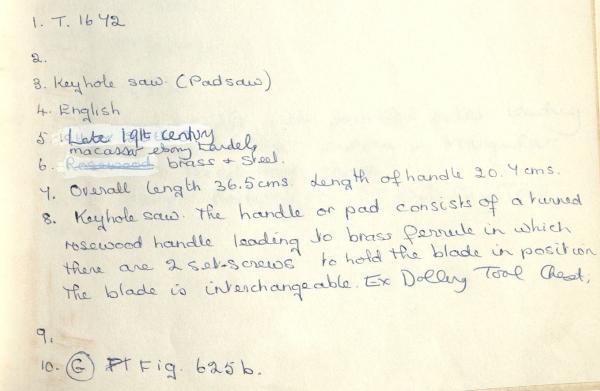 1. T. 1642
2.
3. Keyhole saw. (Padsaw)
4. English
5 Late 19th century
macassar ebony handle,
6. Rosewood brass + steel.
7. Overall length 36.5cms. Length of handle 20.4cms.
8. Keyhole saw. The handle or pad consists of a turned
rosewood handle leading to brass ferrule in which
there are 2 set-screws to hold the blade in position
The blade is interchangeable. Ex Tool Chest,
9.
10. G Fig. 625b.